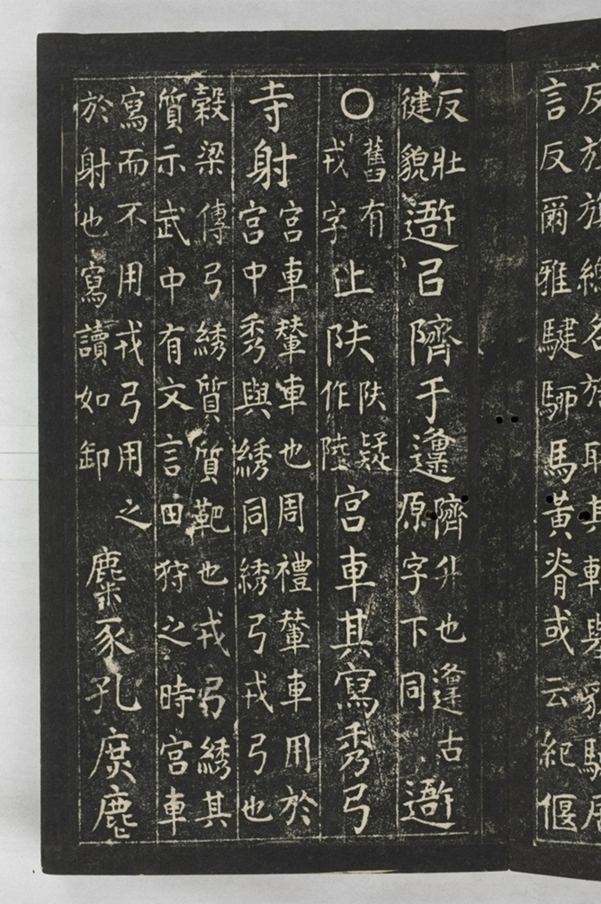 言反爾雅騝駵馬黃脊或云紀偃
反壯
健貌
㠯隮于邍
隮升也邍古
原字下同
〇
舊有
戎字
止陕
陕疑
作陸
宮車其寫秀弓
寺射
宮車輦車也周禮輦車用於
宮中秀與綉同綉弓戎弓也
榖梁傳弓綉質質靶也戎弓綉其
質示武中有文言田狩之時宮車
寫而不用戎弓用之
於射也寫讀如卸
麋豕孔庶麀